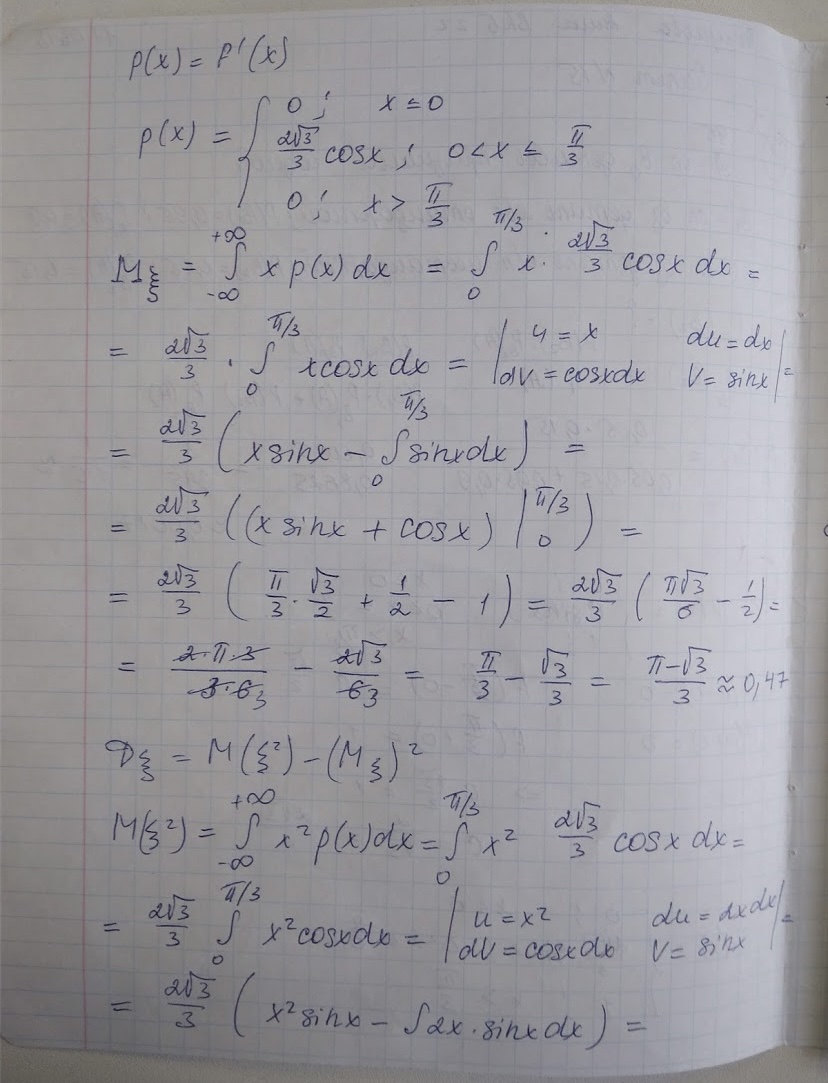 p(x) = F'(x)
p(x) = { 0 ; x ≤ 0
2√3/3 cosx ; 0 < x ≤ π/3
0 ; x > π/3
Mξ = ∫_{-∞}^{+∞} x p(x) dx = ∫_0^{π/3} x · 2√3/3 cosx dx =
= 2√3/3 · ∫_0^{π/3} xcosx dx = | u = x du = dx dv = cosxdx v = sinx | =
= 2√3/3 ( x sinx − ∫_0^{π/3} sinxdx ) =
= 2√3/3 ( (x sinx + cosx) |_0^{π/3} ) =
= 2√3/3 ( π/3 · √3/2 + 1/2 − 1 ) = 2√3/3 ( π√3/6 − 1/2 ) =
= 2·π·3/3·6 3 − 2√3/6 3 = π/3 − √3/3 = π−√3/3 ≈ 0,47
Dξ = M(ξ²) − (Mξ)²
M(ξ²) = ∫_{-∞}^{+∞} x² p(x)dx = ∫_0^{π/3} x² 2√3/3 cosx dx =
= 2√3/3 ∫_0^{π/3} x²cosxdx = | u = x² du = 2xdx dv = cosxdx v = sinx | =
= 2√3/3 ( x² sinx − ∫2x · sinxdx ) =